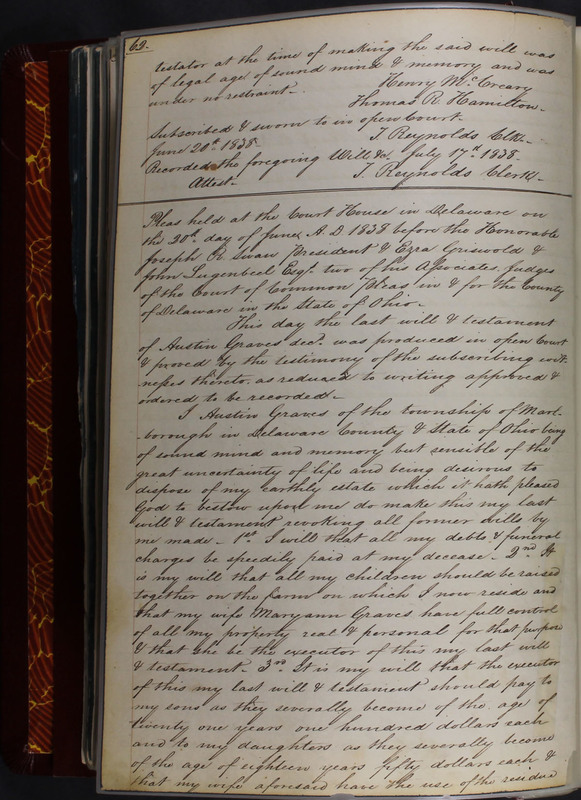 62.
testator at the time of making the said will was
of legal age of sound mind & memory and was
under no restraint –
Henry McCreary
Thomas R. Hamilton –
Subscribed & sworn to in open Court –
June 20th 1838.
T Reynolds Clk –
Recorded the foregoing Will &c. July 17th 1838.
Attest –
T. Reynolds Clerk –
Pleas held at the Court House in Delaware on
the 20th day of June A. D 1838 before the Honorable
Joseph R. Swan President & Ezra Griswold &
John Lugenbeel Esqs. two of his Associates, Judges
of the Court of Common Pleas in & for the County
of Delaware in the State of Ohio –
This day the last will & testament
of Austin Graves decd. was produced in open Court
& proved by the testimony of the subscribing wit-
nesses thereto, as reduced to writing approved &
ordered to be recorded –
I Austin Graves of the township of Marl-
-borough in Delaware County & State of Ohio being
of sound mind and memory but sensible of the
great uncertainty of life and being desirous to
dispose of my earthly estate which it hath pleased
God to bestow upon me do make this my last
will & testament revoking all former wills by
me made – 1st I will that all my debts & funeral
charges be speedily paid at my decease – 2nd It
is my will that all my children should be raised
together on the farm on which I now reside and
that my wife Maryann Graves have full control
of all my property real & personal for that purpose
& that she be the executor of this my last will
& testament – 3rd It is my will that the executor
of this my last will & testament should pay to
my sons as they severally become of the age of
twenty one years one hundred dollars each
and to my daughters as they severally become
of the age of eighteen years fifty dollars each &
that my wife aforesaid have the use of the residue